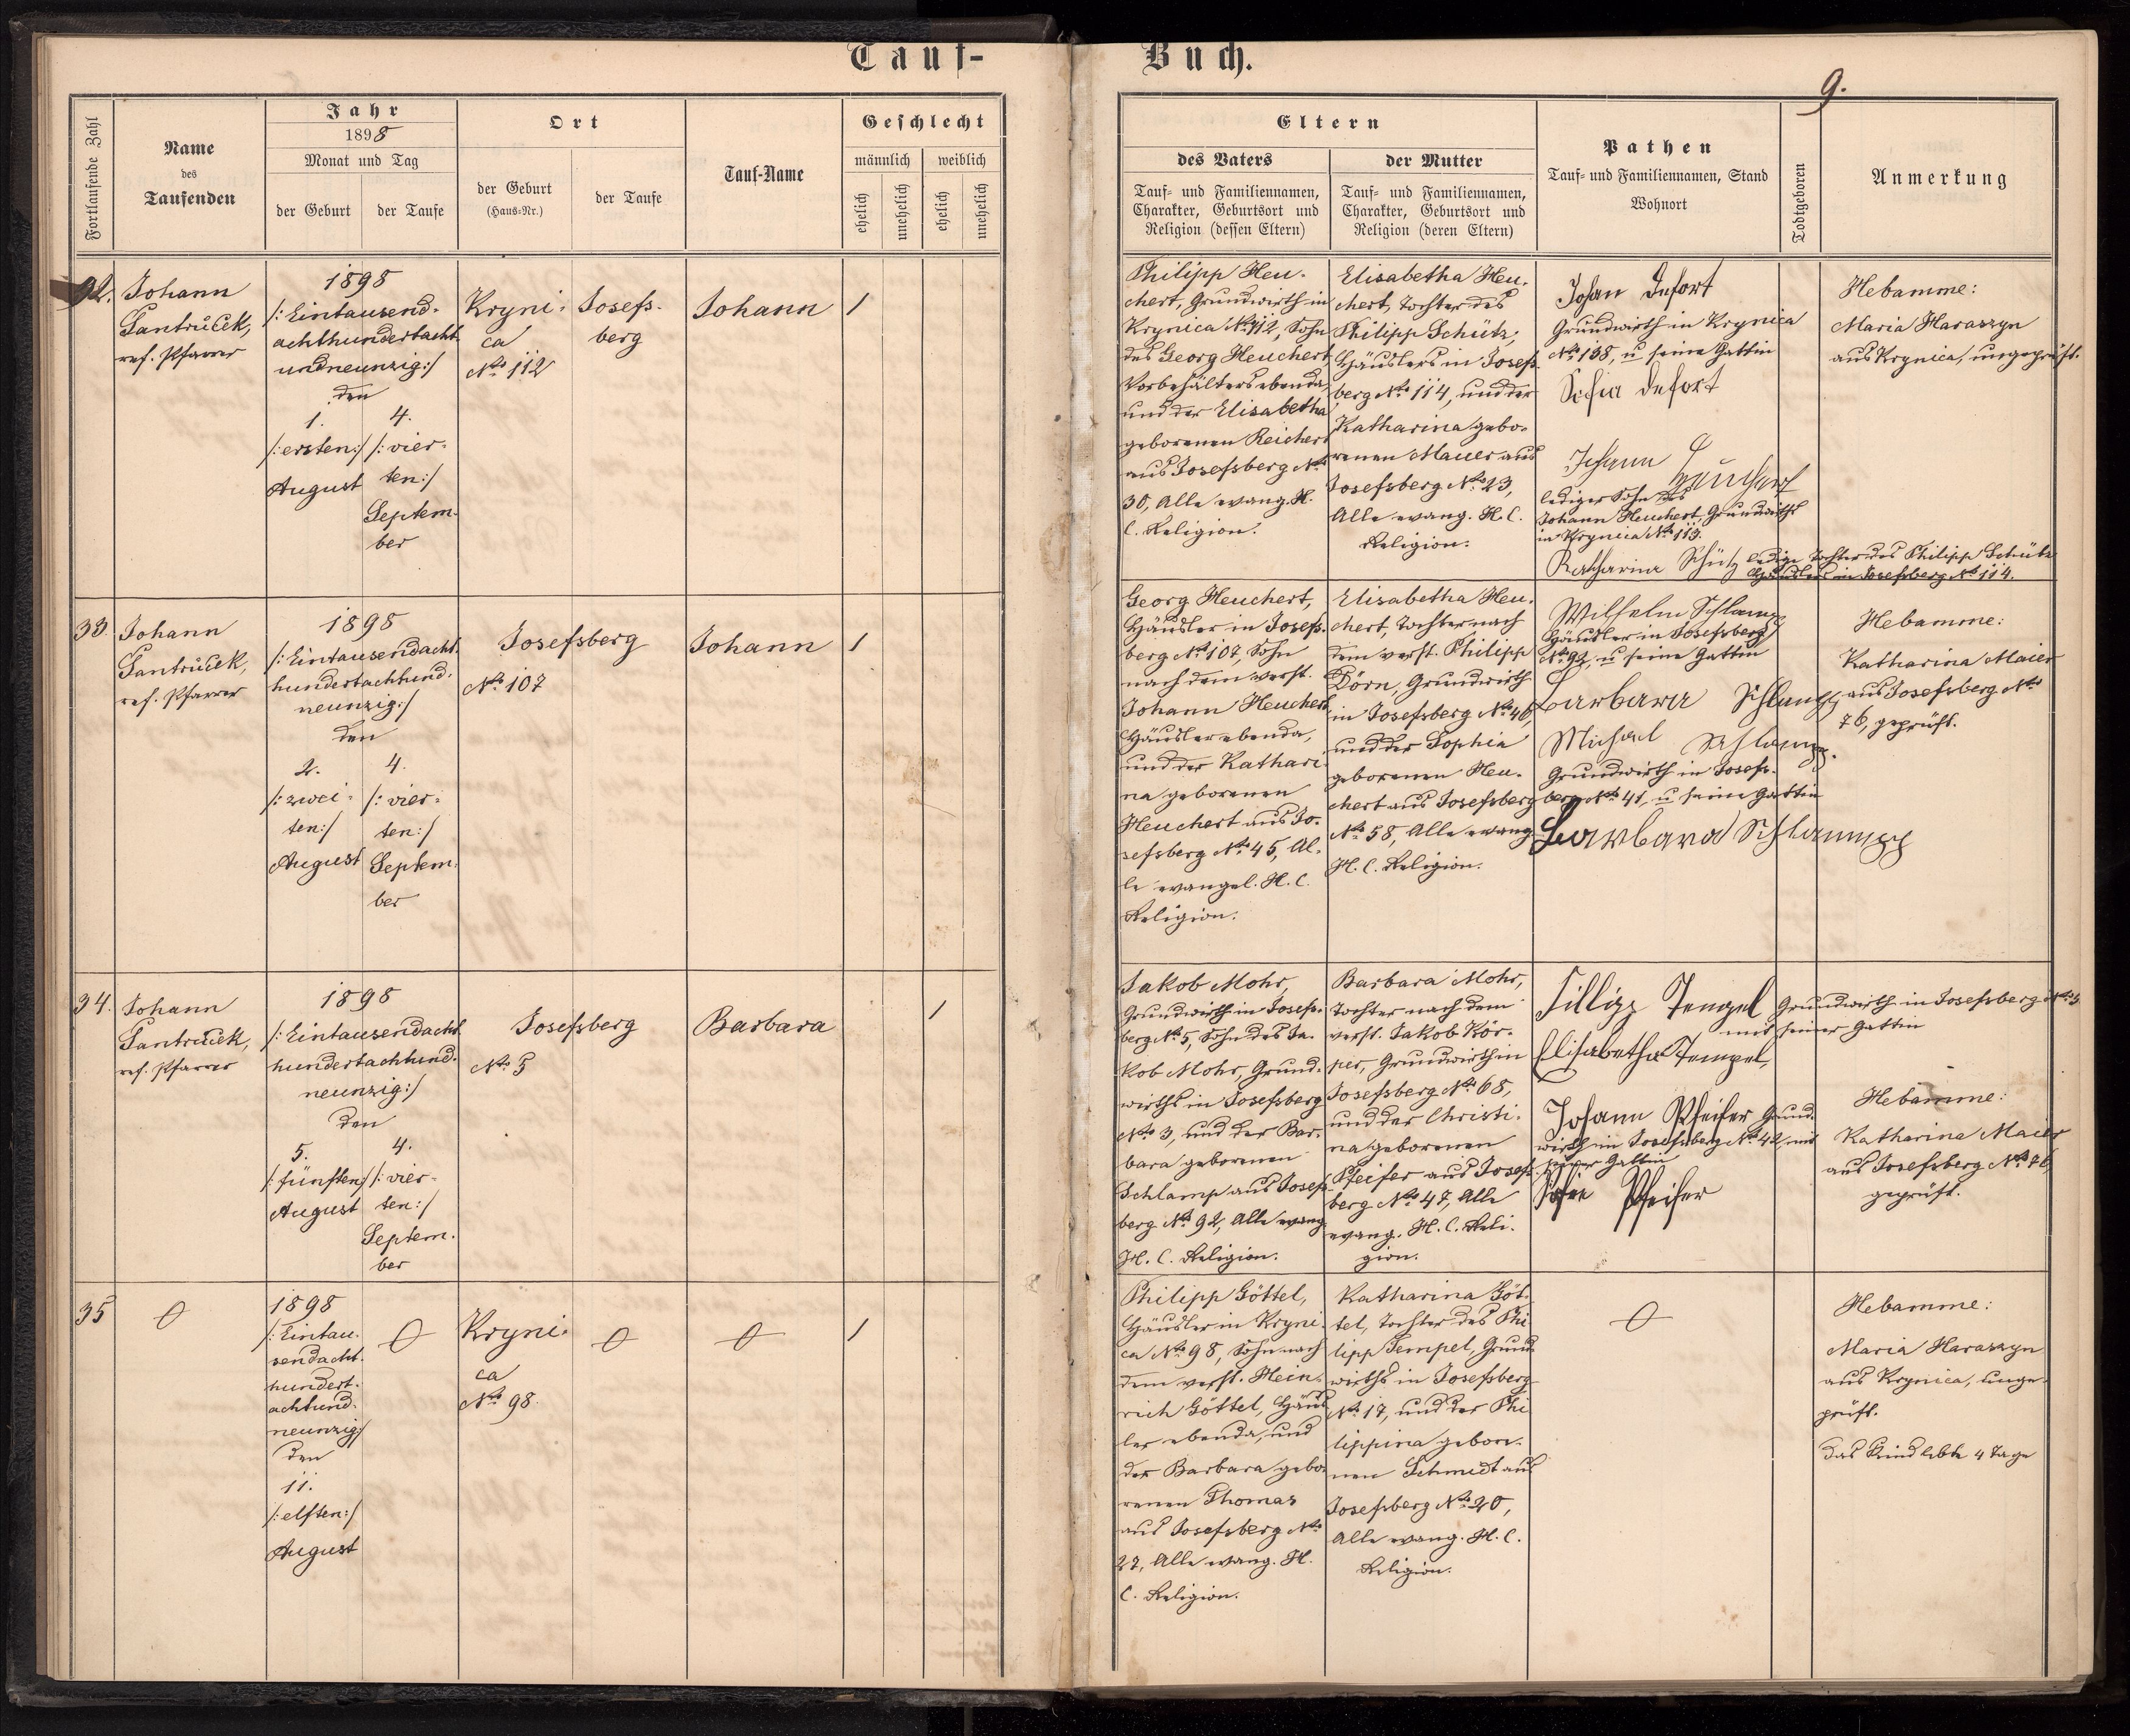 Tauf-
Buch.
9.
Fortlaufende Zahl
Name
des
Taufenden
Jahr
1898
Monat und Tag
der Geburt
der Taufe
Ort
der Geburt
(Haus-Nr.)
der Taufe
Tauf-Name
Geschlecht
männlich
weiblich
ehelich
unehelich
ehelich
unehelich
Eltern
des Vaters
Tauf- und Familiennamen,
Charakter, Geburtsort und
Religion (dessen Eltern)
der Mutter
Tauf- und Familiennamen,
Charakter, Geburtsort und
Religion (deren Eltern)
Pathen
Tauf- und Familiennamen, Stand
Wohnort
Todtgeboren
Anmerkung
32.
Johann
Pantruček,
ref. Pfarrer
1898
/: Eintausend-
achthundertacht-
undneunzig :/
den
1.
/: ersten :/
August
4.
/: vier-
ten :/
Septem-
ber
Kryni-
ca
No 112
Josefs-
berg
Johann
1
Philipp Heu-
chert, Grundwirth in
Krynica No 112, Sohn
des Georg Heuchert
Vorbehälters ebenda,
und der Elisabetha
geborenen Reichert
aus Josefsberg No
30, Alle evang. H.
C. Religion.
Elisabetha Heu-
chert, Tochter des
Philipp Schütz,
Häuslers in Josefs-
berg No 114, und der
Katharina gebo-
renen Mauer aus
Josefsberg No 23,
Alle evang. H. C.
Religion.
Johan Defort
Grundwirth in Krynica
No 138, u seine Gattin
Sofia Defort
Johann Heuchert
lediger Sohn des
Johann Heuchert, Grundwirths
in Krynica No 113.
Katharina Schütz ledige Tochter des Philipp Schütz
Häuslers in Josefsberg No 114.
Hebamme:
Maria Haraszyn
aus Krynica, ungeprüft.
33.
Johann
Pantruček,
ref. Pfarrer
1898
/: Eintausendacht-
hundertachtund-
neunzig :/
den
2.
/: zwei-
ten :/
August
4.
/: vier-
ten :/
Septem-
ber
Josefsberg
No 107
Johann
1
Georg Heuchert,
Häusler in Josefs-
berg No 107, Sohn
nach dem verst.
Johann Heuchert,
Häusler ebenda,
und der Kathari-
na geborenen
Heuchert aus Jo-
sefsberg No 45, Al-
le evangel. H. C.
Religion.
Elisabetha Heu-
chert, Tochter nach
dem verst. Philipp
Dörn, Grundwirth
in Josefsberg No 46,
und der Sophia
geborenen Heu-
chert aus Josefsberg
No 58, Alle evang.
H. C. Religion.
Wilhelm Schlamp
Häusler in Josefsberg
No 92, u seine Gattin
Barbara Schlamp
Michael Schlamp.
Grundwirth in Josefs-
berg No 41, u seine Gattin
Barbara Schlampp
Hebamme:
Katharina Maier
aus Josefsberg No
76, geprüft.
34.
Johann
Pantruček,
ref. Pfarrer
1898
/: Eintausendacht-
hundertachtund-
neunzig :/
den
5.
/: fünften :/
August
4.
/: vier-
ten :/
Septem-
ber
Josefsberg
No 5
Barbara
1
Jakob Mohr,
Grundwirth in Josefs-
berg No 5, Sohn des Ja-
kob Mohr, Grund-
wirths in Josefsberg
No 3, und der Bar-
bara geborenen
Schlamp aus Josefs-
berg No 92, Alle evang.
H. C. Religion.
Barbara Mohr,
Tochter nach dem
verst. Jakob Kör-
per, Grundwirth in
Josefsberg No 68,
und der Christi-
na geborenen
Pfeifer aus Josefs-
berg No 47, Alle
evang. H. C. Reli-
gion.
Fillipp Tempel Grundwirth in Josefsberg
mit seiner Gattin
Elisabetha Tempel,
Johann Pfeifer Grund-
wirth in Josefsberg No 42, mit
seiner Gattin
Sofie Pfeifer
Hebamme:
Katharina Maier
aus Josefsberg No 76,
geprüft.
35
0
1898
/: Eintau-
sendacht-
hundert-
achtund-
neunzig :/
den
11.
/: elften :/
August
0
Kryni-
ca
No 98.
0
0
1
Philipp Göttel,
Häusler in Kryni-
ca No 98, Sohn nach
dem verst. Hein-
rich Göttel, Häus-
ler ebenda, und
der Barbara gebo-
renen Thomas
aus Josefsberg No
27, Alle evang. H.
C. Religion.
Katharina Göt-
tel, Tochter des Phi-
lipp Tempel, Grund-
wirths in Josefsberg
No 17, und der Phi-
lippina gebore-
nen Schmidt aus
Josefsberg No 20,
Alle evang. H. C.
Religion.
0
Hebamme:
Maria Haraszyn
aus Krynica, unge-
prüft.
Das Kind lebte 4 Tage